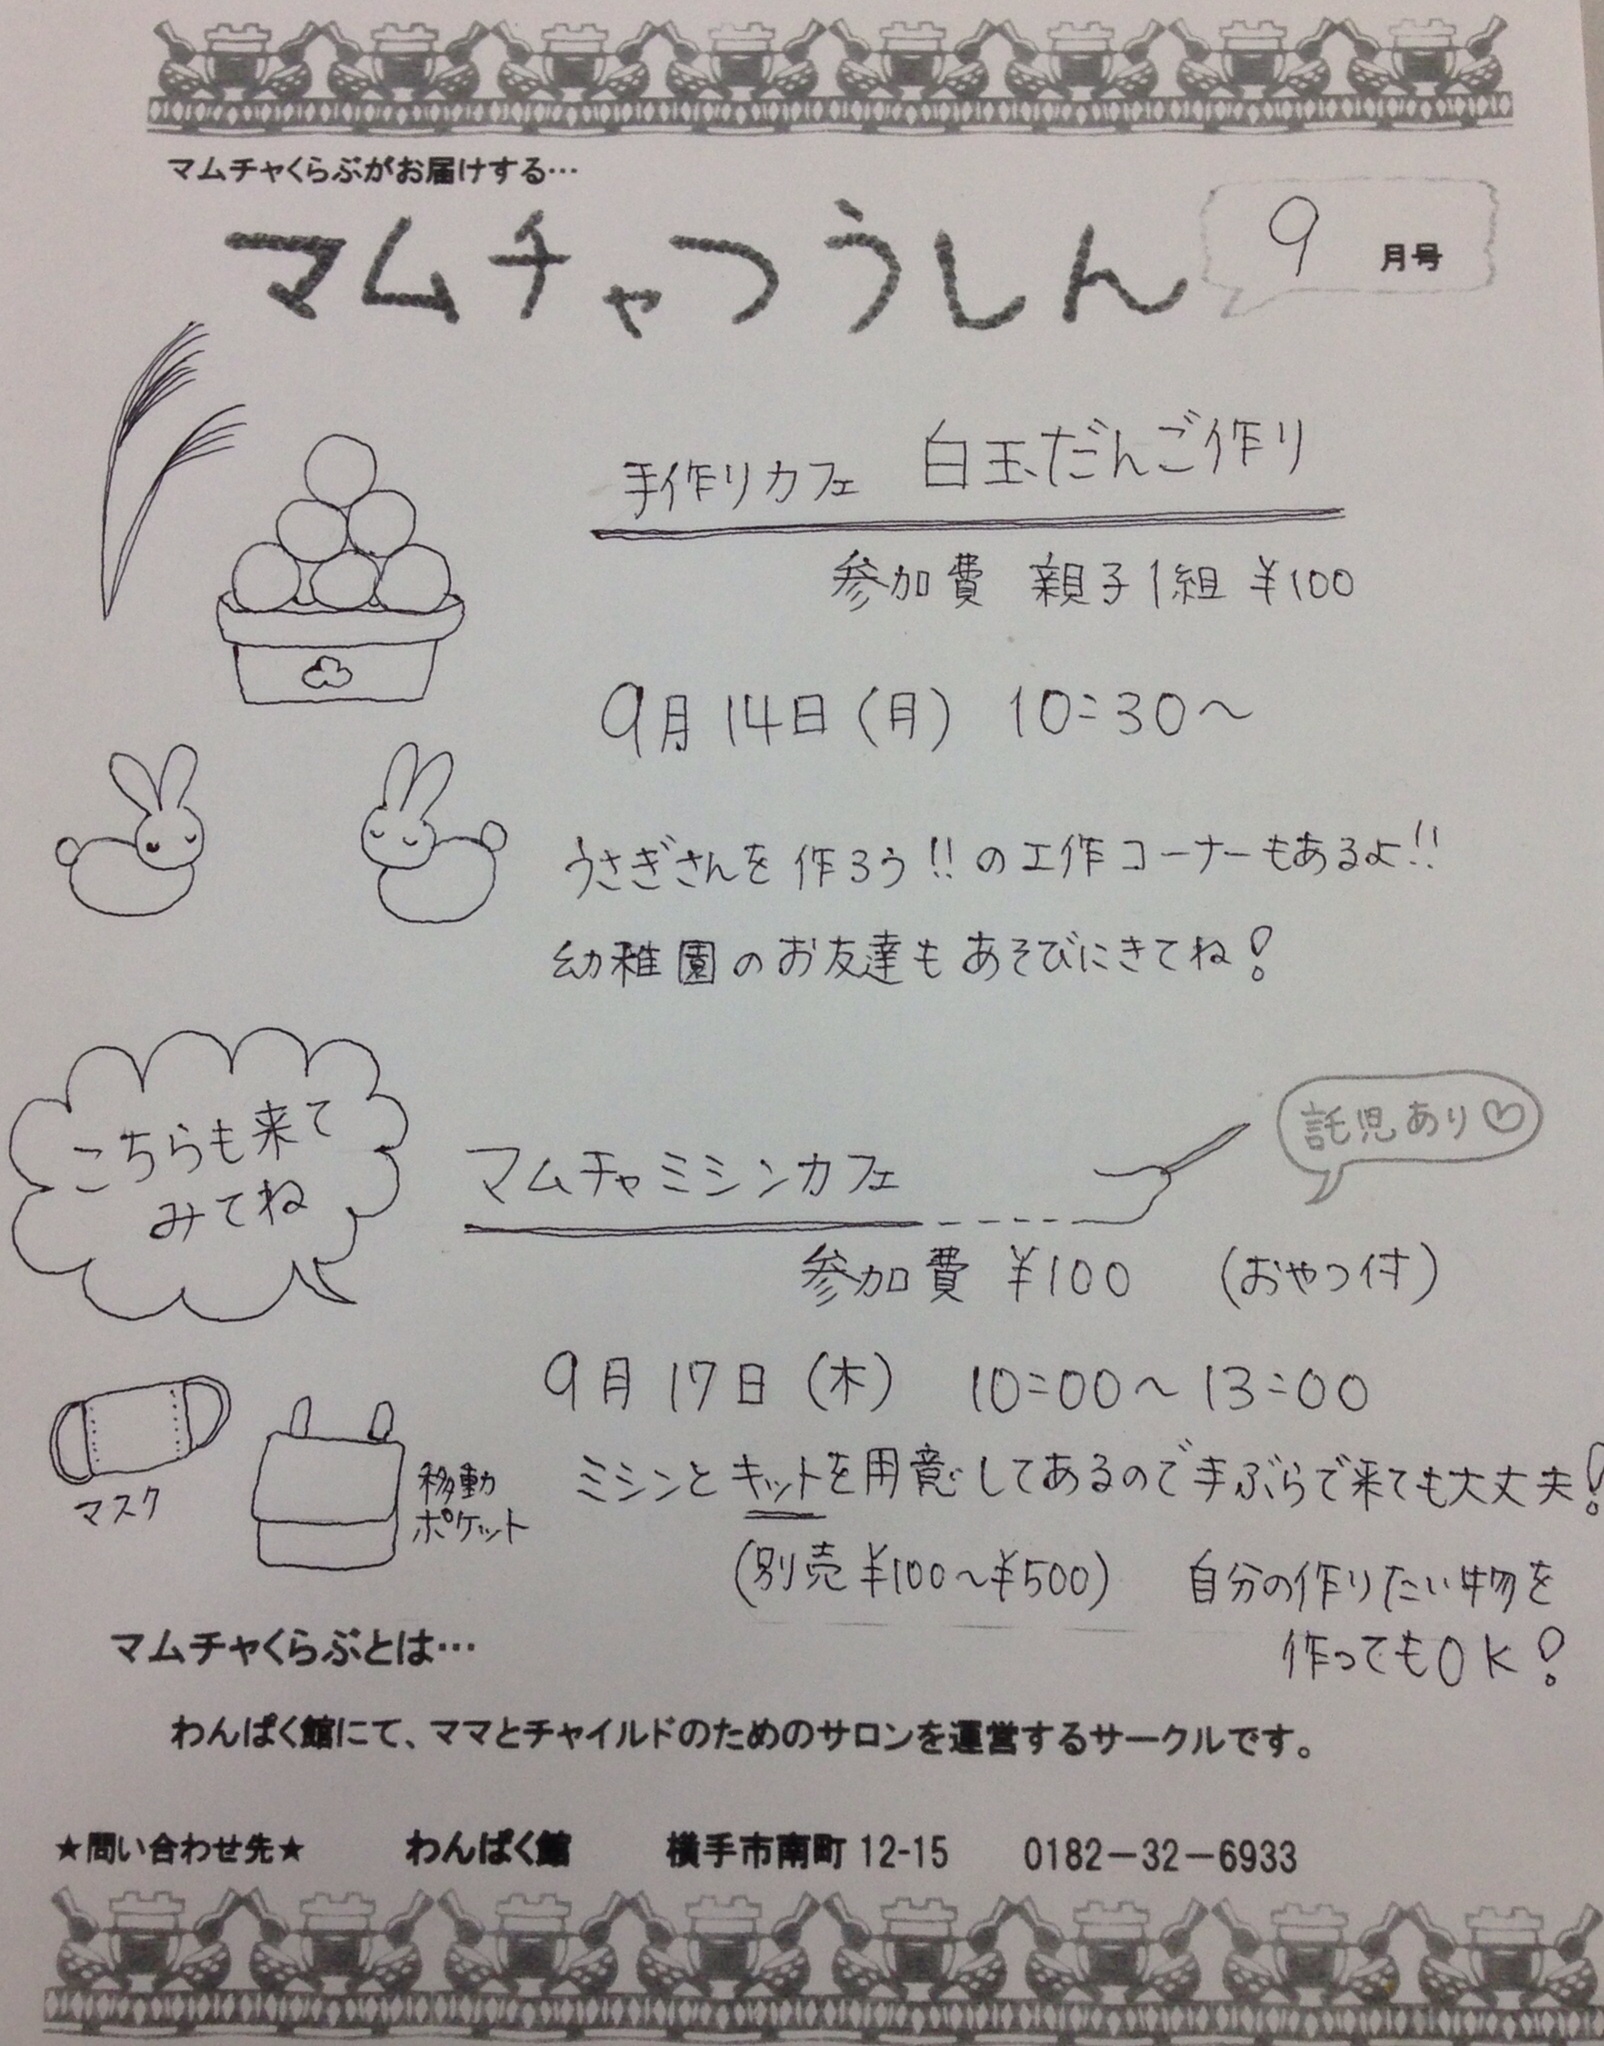 マムチャくらぶがお届けする…
マムチャつうしん
9 月号
手作りカフェ 白玉だんご作り
参加費 親子1組 ¥100
9月14日(月) 10:30〜
うさぎさんを作ろう!!の工作コーナーもあるよ!!
幼稚園のお友達もあそびにきてね!
こちらも来て
みてね
マムチャミシンカフェ
託児あり♡
参加費 ¥100 (おやつ付)
9月17日(木) 10:00〜13:00
マスク
移動
ポケット
ミシンとキットを用意してあるので手ぶらで来ても大丈夫!
(別売¥100〜¥500) 自分の作りたい物を
作ってもOK!
マムチャくらぶとは…
わんぱく館にて、ママとチャイルドのためのサロンを運営するサークルです。
★問い合わせ先★ わんぱく館 横手市南町12-15 0182-32-6933